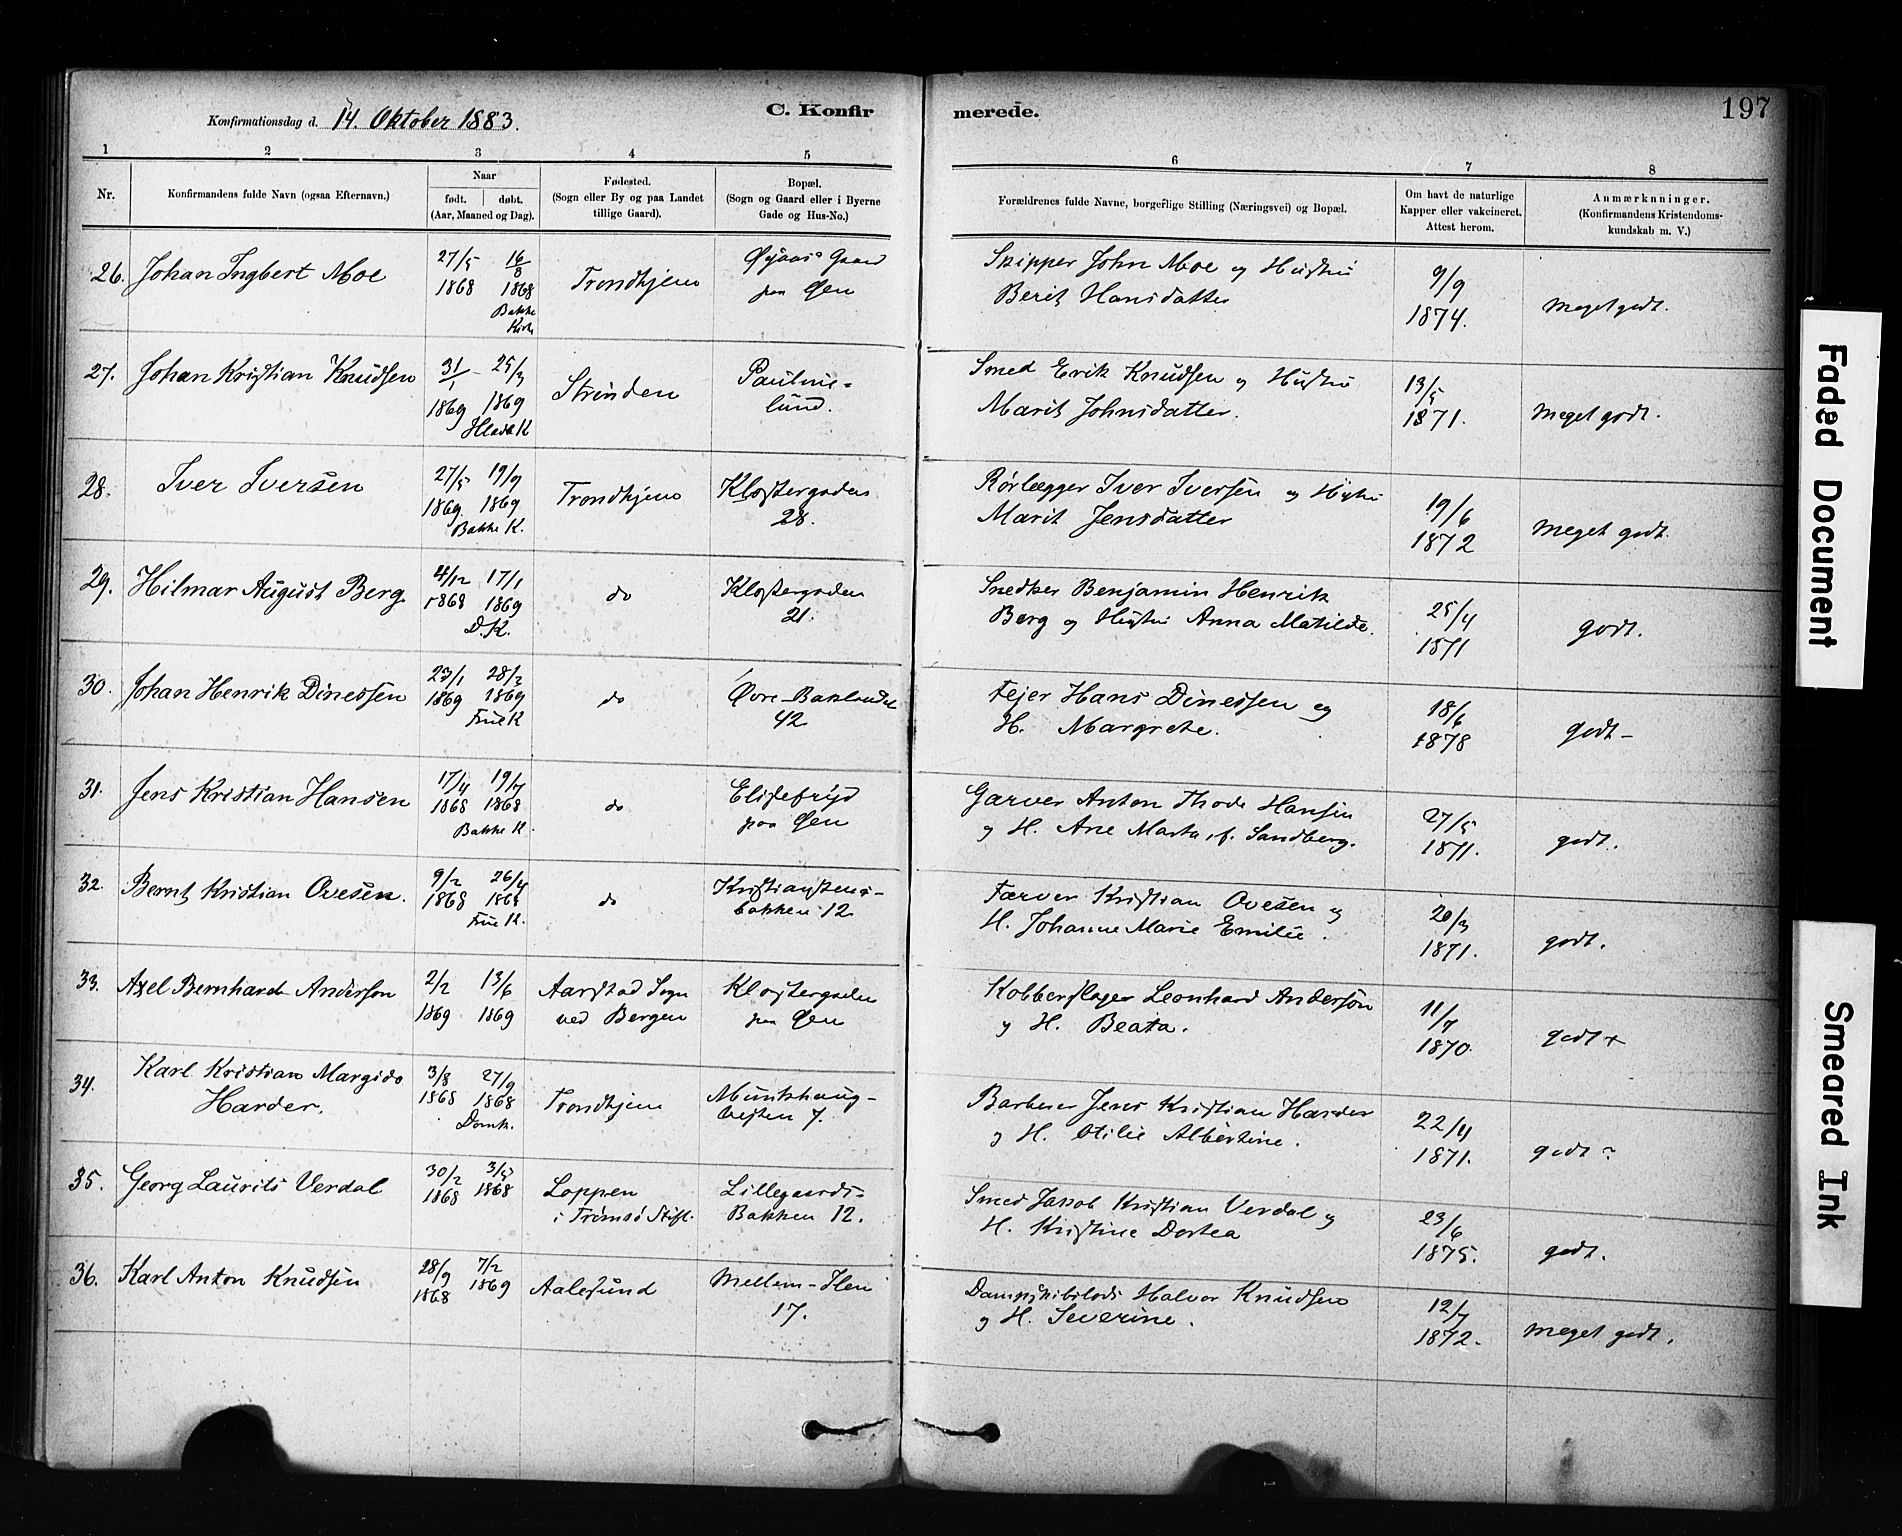 Konfirmationsdag d. 14. Oktober 1883.
C. Konfir
merede.
197
1 2 3 4 5 6 7 8
Nr.
Konfirmandens fulde Navn (ogsaa Efternavn.)
Naar
født. døbt.
(Aar, Maaned og Dag).
Fødested.
(Sogn eller By og paa Landet
tillige Gaard).
Bopæl.
(Sogn og Gaard eller i Byerne
Gade og Hus-No.)
Forældrenes fulde Navne, borgerlige Stilling (Næringsvei) og Bopæl.
Om havt de naturlige
Kopper eller vakcineret.
Attest herom.
Anmærkninger.
(Konfirmandens Kristendoms-
kundskab m. V.)
26. Johan Ingbert Moe
27/5 1868
16/8 1868
Bakke
Kirke
Trondhjem
Gaard
paa Øen
Skipper John Moe og Hustru
Berit Hansdatter
9/9
1874.
meget godt.
27. Johan Kristian Knudsen
31/1 1869
25/3 1869
Hlade K
Strinden
Pauline-
lund.
Smed Erik Knudsen og Hustru
Marit Johnsdatter.
13/5
1871.
meget godt.
28. Iver Iversen
27/5 1869.
19/9 1869
Bakke K.
Trondhjem
Klostergaden
28.
Rørlægger Iver Iversen og Hustru
Marit Jensdatter
19/6
1872
meget godt.
29. Hilmar August Berg
4/12 1868
17/1 1869
D.K.
do
Klostergaden
21.
Snedker Benjamin Henrik
Berg og Hustru Anna Matilde.
25/4
1871
godt.
30. Johan Henrik Dinessen
23/1 1869
28/3 1869
Frue K
do
Øvre Baklandet
42
Fejer Hans Dinessen og
H. Margrete.
18/6
1878
godt -
31. Jens Kristian Hansen
17/4 1868
19/7 1868
Bakke K.
do
Elisefryd
paa Øen
Garver Anton Thode Hansen
og H. Ane Marta, f. Sandberg.
27/5
1871.
godt.
32. Bernt Kristian Ovesen.
9/2 1868
26/4 1868
Frue K.
do
Kristianstens-
bakken 12
Farver Kristian Ovesen og
H. Johanne Marie Emilie.
20/3
1871.
godt.
33. Axel Bernhard Anderson
2/2 1869
13/6 1869
Aarstad Sogn
ved Bergen
Klostergaden
paa Øen
Kobberslager Leonhard Anderson
og H. Beata.
11/7
1870.
godt +
34. Karl Kristian Margido
Harder.
3/8 1868
27/9 1868
Domk.
Trondhjem
Munkhaug-
vejten 7.
Barberer Jens Kristian Harder
og H. Otilie Albertine.
22/4
1871.
godt ?
35. Georg Laurits Verdal
30/2 1868
3/5 1868
Loppen
i Tromsø Stift.
Lillegaards-
Bakken 12.
Smed Jakob Kristian Verdal og
H. Kristine Dortea
23/6
1875.
godt.
36. Karl Anton Knudsen
28/9 1868
7/2 1869
Aalesund
Mellem-Ilen
17.
Dampskibslods Halvor Knudsen
og H. Severine.
12/7
1872.
meget godt.
Faded Document
Smeared Ink